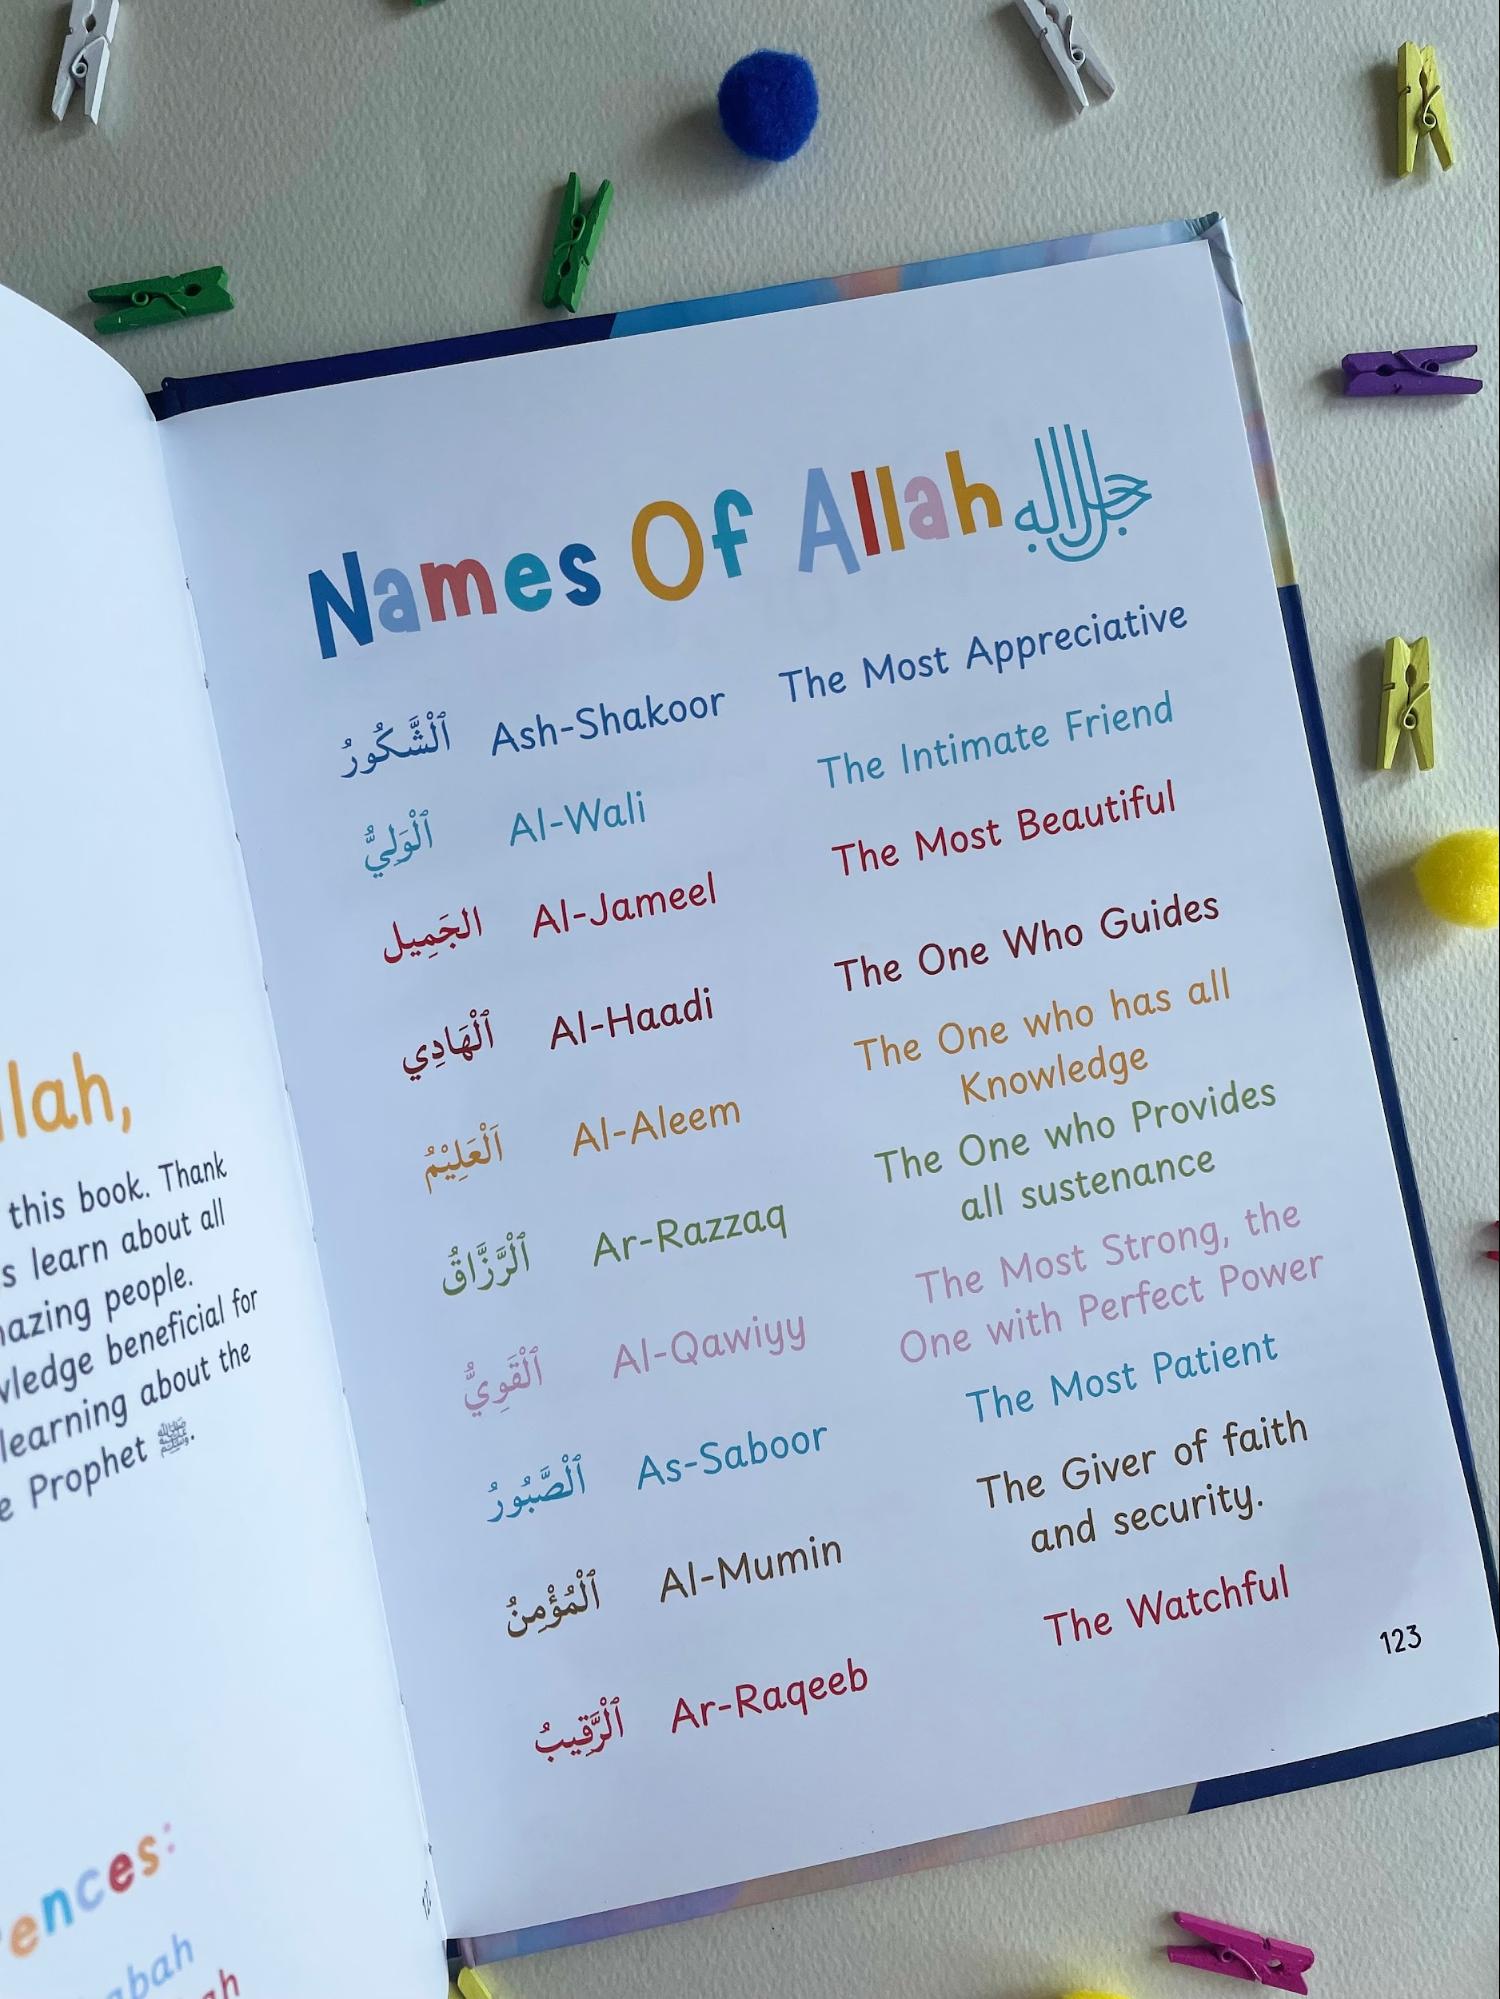 llah,
this book. Thank
s learn about all
azing people.
ledge beneficial for
learning about the
Prophet ﷺ.
ences:
abah
ah
Names Of Allah جل جلاله
ٱلْشَّكُورُ Ash-Shakoor The Most Appreciative
ٱلْوَلِيُّ Al-Wali The Intimate Friend
الجَمِيل Al-Jameel The Most Beautiful
ٱلْهَادِي Al-Haadi The One Who Guides
اَلْعَلِيْمُ Al-Aleem The One who has all
Knowledge
ٱلْرَّزَّاقُ Ar-Razzaq The One who Provides
all sustenance
ٱلْقَوِيُّ Al-Qawiyy The Most Strong, the
One with Perfect Power
ٱلْصَّبُورُ As-Saboor The Most Patient
ٱلْمُؤْمِنُ Al-Mumin The Giver of faith
and security.
ٱلْرَّقِيبُ Ar-Raqeeb The Watchful
123